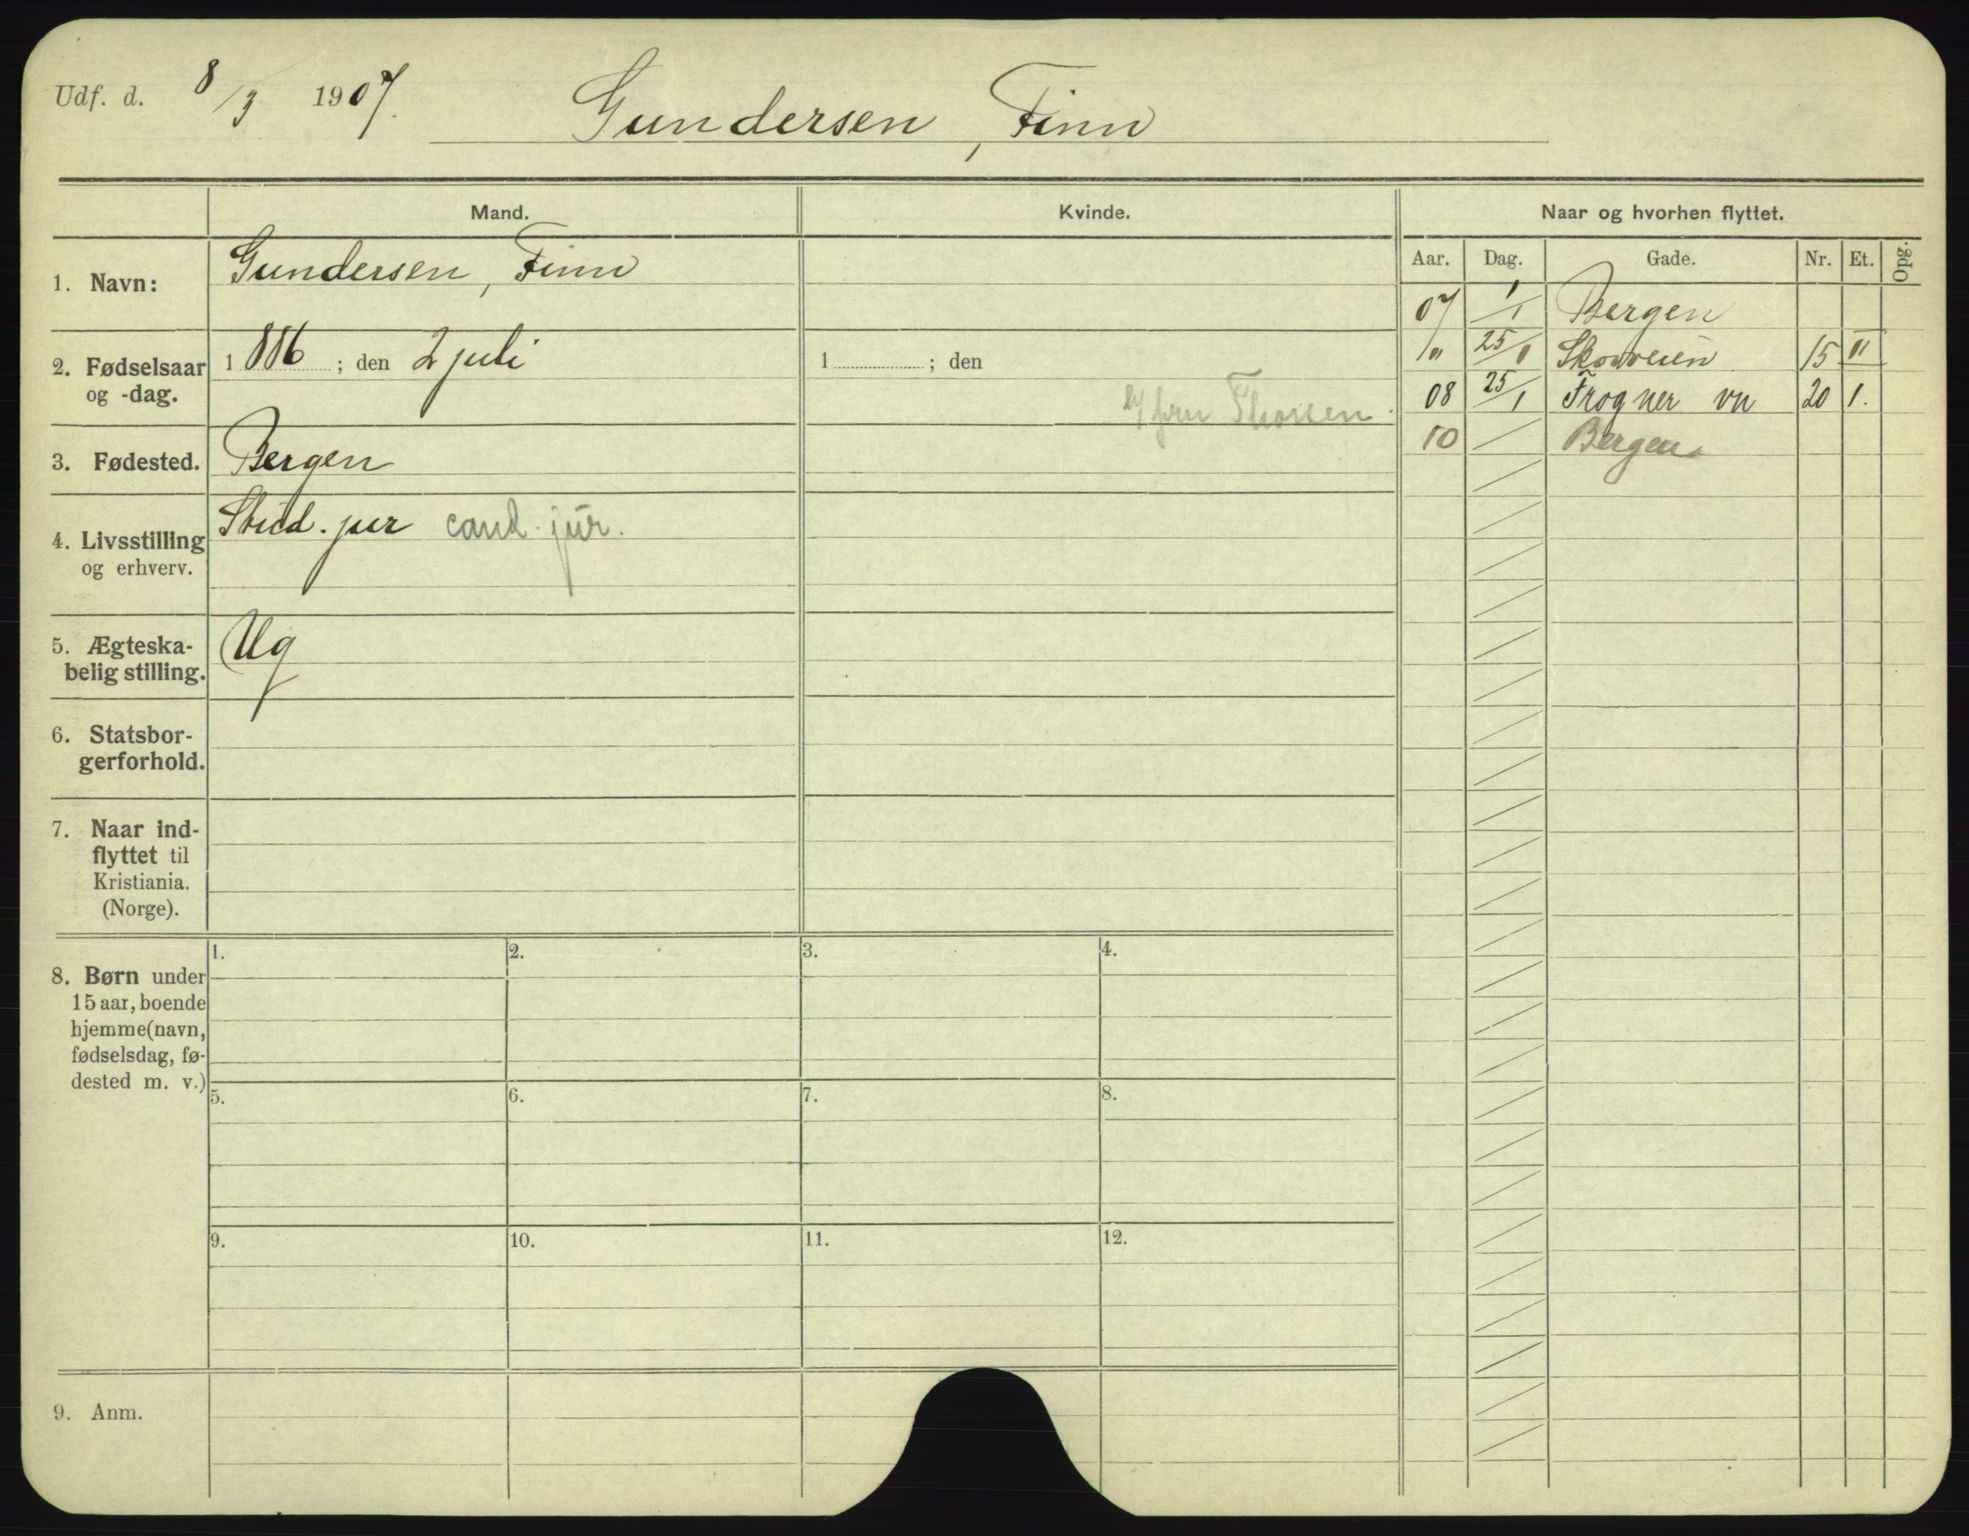 Udf. d. 8/3 1907.
Gundersen, Finn
Mand.
Kvinde.
Naar og hvorhen flyttet.
Aar. Dag. Gade. Nr. Et. Opg.
1. Navn: Gundersen, Finn
2. Fødselsaar og -dag.
1886; den 2 juli
1 ; den
fru Thorsen.
3. Fødested. Bergen
4. Livsstilling og erhverv.
Stud. jur cand. jur.
5. Ægteska-
belig stilling.
Ug
6. Statsbor-
gerforhold.
7. Naar ind-
flyttet til
Kristiania.
(Norge).
8. Børn under
15 aar, boende
hjemme (navn,
fødselsdag, fø-
dested m. v.)
1. 2. 3. 4.
5. 6. 7. 8.
9. 10. 11. 12.
9. Anm.
07 1/1 Bergen
" 25/1 Skovveien 15 II
08 25/1 Frogner vn 20 1.
10 / Bergen